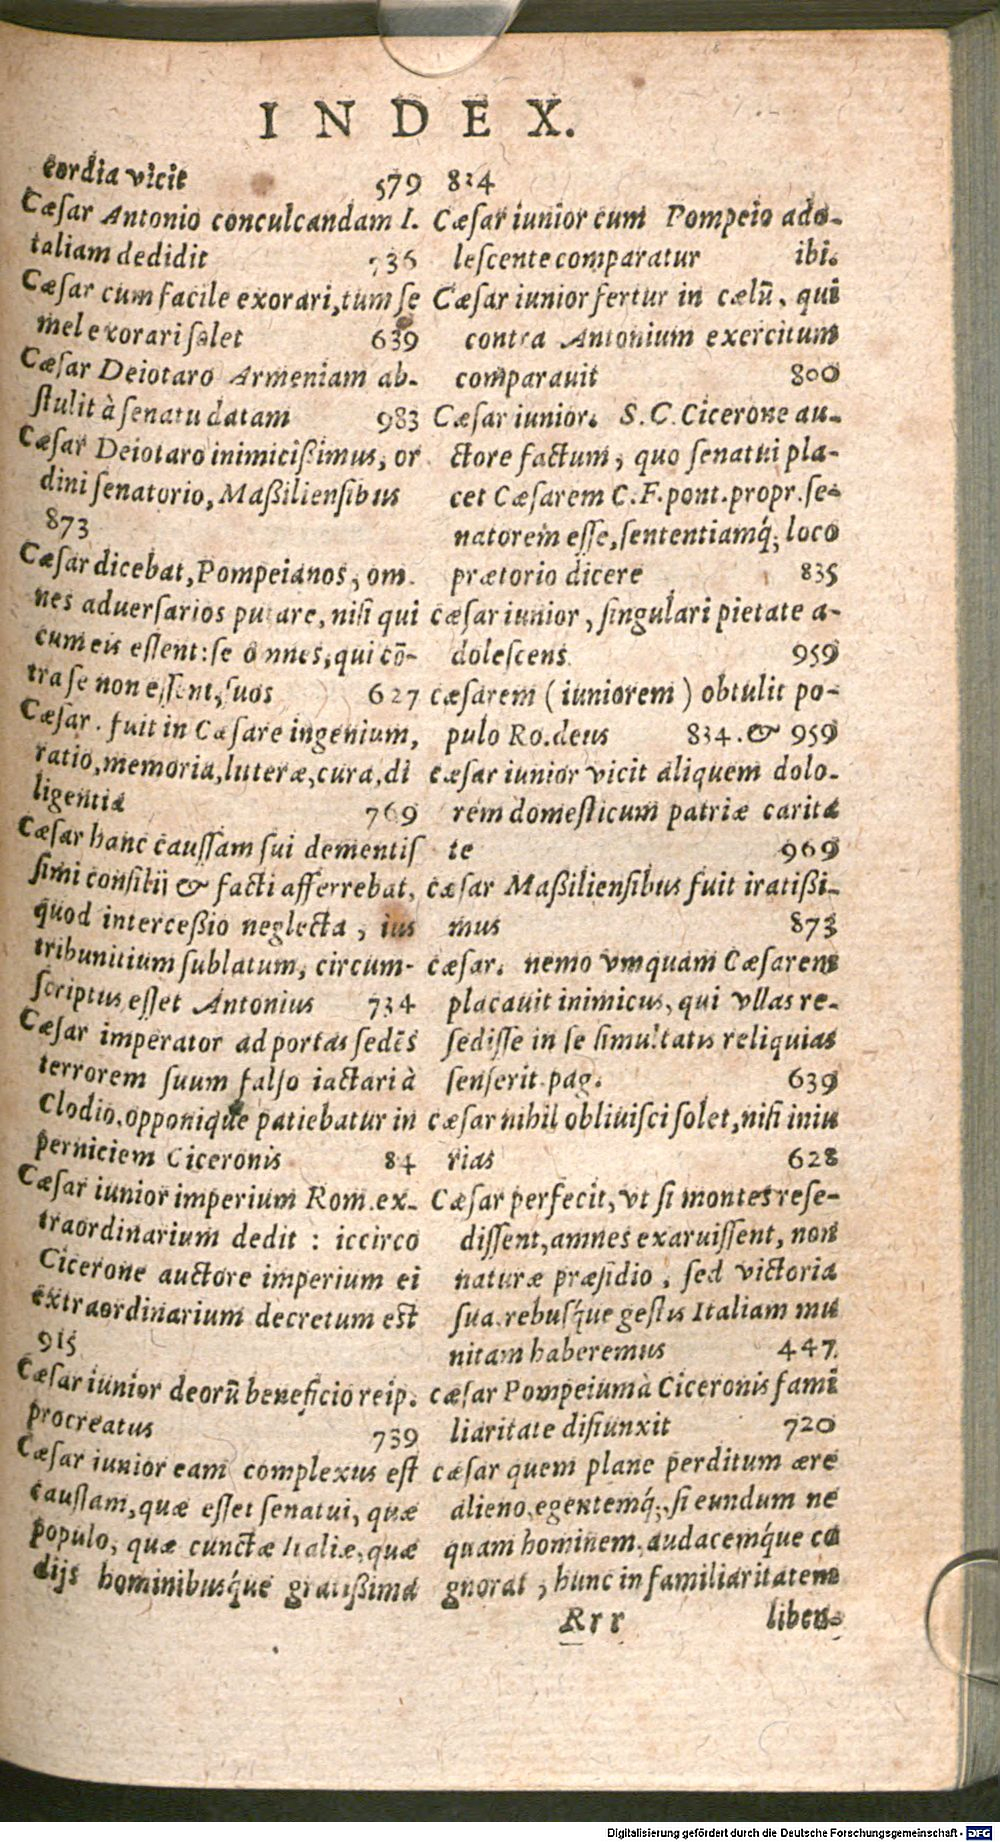 INDEX.
cordia vicit 579
Cæsar Antonio conculcandam I.
taliam dedidit 736
Cæsar cum facile exorari, tum se
mel exorari solet 639
Cæsar Deiotaro Armeniam ab-
stulit à senatu datam 983
Cæsar Deiotaro inimicißimus, or
dini senatorio, Maßiliensibus
873
Cæsar dicebat, Pompeianos, om
nes aduersarios putare, nisi qui
cum eis essent: se omnes, qui cō-
tra se non essent, suos 627
Cæsar. fuit in Cæsare ingenium,
ratio, memoria, literæ, cura, di
ligentia 769
Cæsar hanc caussam sui dementis
simi consilij & facti afferrebat,
quod interceßio neglecta, ius
tribunitium sublatum, circum-
scriptus esset Antonius 734
Cæsar imperator ad portas sedēs
terrorem suum falso iactari à
Clodio, opponique patiebatur in
perniciem Ciceronis 84
Cæsar iunior imperium Rom. ex-
traordinarium dedit : iccirco
Cicerone auctore imperium ei
extraordinarium decretum est
915
Cæsar iunior deorū beneficio reip.
procreatus 739
Cæsar iunior eam complexus est
caussam, quæ esset senatui, quæ
populo, quæ cunctæ Italiæ, quæ
dijs hominibusq́ue gratißima
834
Cæsar iunior cum Pompeio ado-
lescente comparatur ibi.
Cæsar iunior fertur in cælū, qui
contra Antonium exercitum
comparauit 800
Cæsar iunior. S. C. Cicerone au-
ctore factum, quo senatui pla-
cet Cæsarem C. F. pont. propr. se-
natorem esse, sententiamq́; loco
prætorio dicere 835
cæsar iunior, singulari pietate a-
dolescens 959
cæsarem (iuniorem) obtulit po-
pulo Ro. deus 834. & 959
cæsar iunior vicit aliquem dolo-
rem domesticum patriæ carita
te 969
cæsar Maßiliensibus fuit iratißi-
mus 873
cæsar. nemo vmquam Cæsarem
placauit inimicus, qui vllas re-
sedisse in se simultatis reliquias
senserit. pag. 639
cæsar nihil obliuisci solet, nisi iniu
rias 628
Cæsar perfecit, vt si montes rese-
dissent, amnes exaruissent, non
naturæ præsidio, sed victoria
sua. rebusq́ue gestis Italiam mu
nitam haberemus 447.
cæsar Pompeium à Ciceronis fami
liaritate disiunxit 720
cæsar quem plane perditum ære
alieno, egentemq́;, si eundum ne
quam hominem, audacemq́ue co
gnorat, hunc in familiaritatem
Rrr liben-
Digitalisierung gefördert durch die Deutsche Forschungsgemeinschaft - DFG